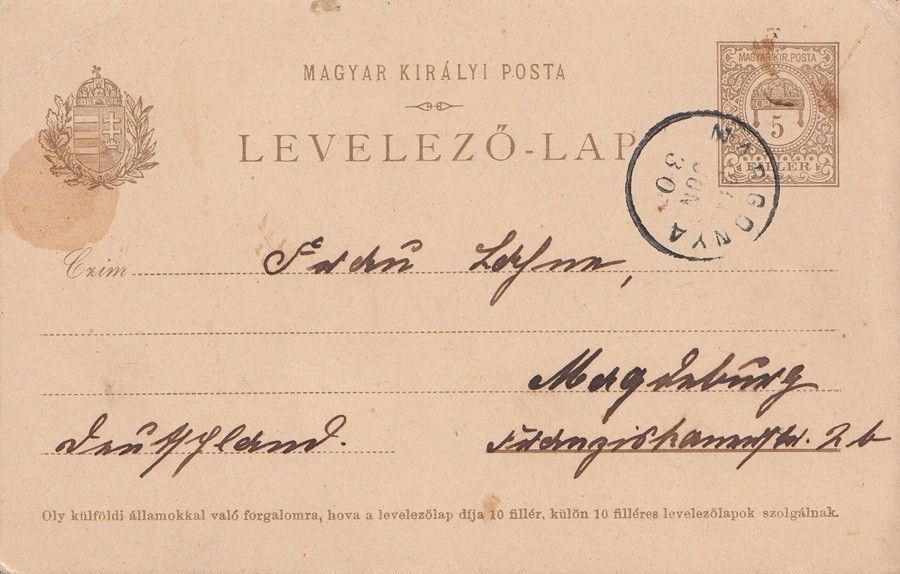 MAGYAR KIRÁLYI POSTA
LEVELEZŐ-LAP
MAGYAR KIR. POSTA
5
FILLÉR
MARGONYA
JUN
30
Czim
Frau Lahne,
Magdeburg
Deutschland.
Franziskanerstr. 2b
Oly külföldi államokkal való forgalomra, hova a levelezőlap díja 10 fillér, külön 10 filléres levelezőlapok szolgálnak.